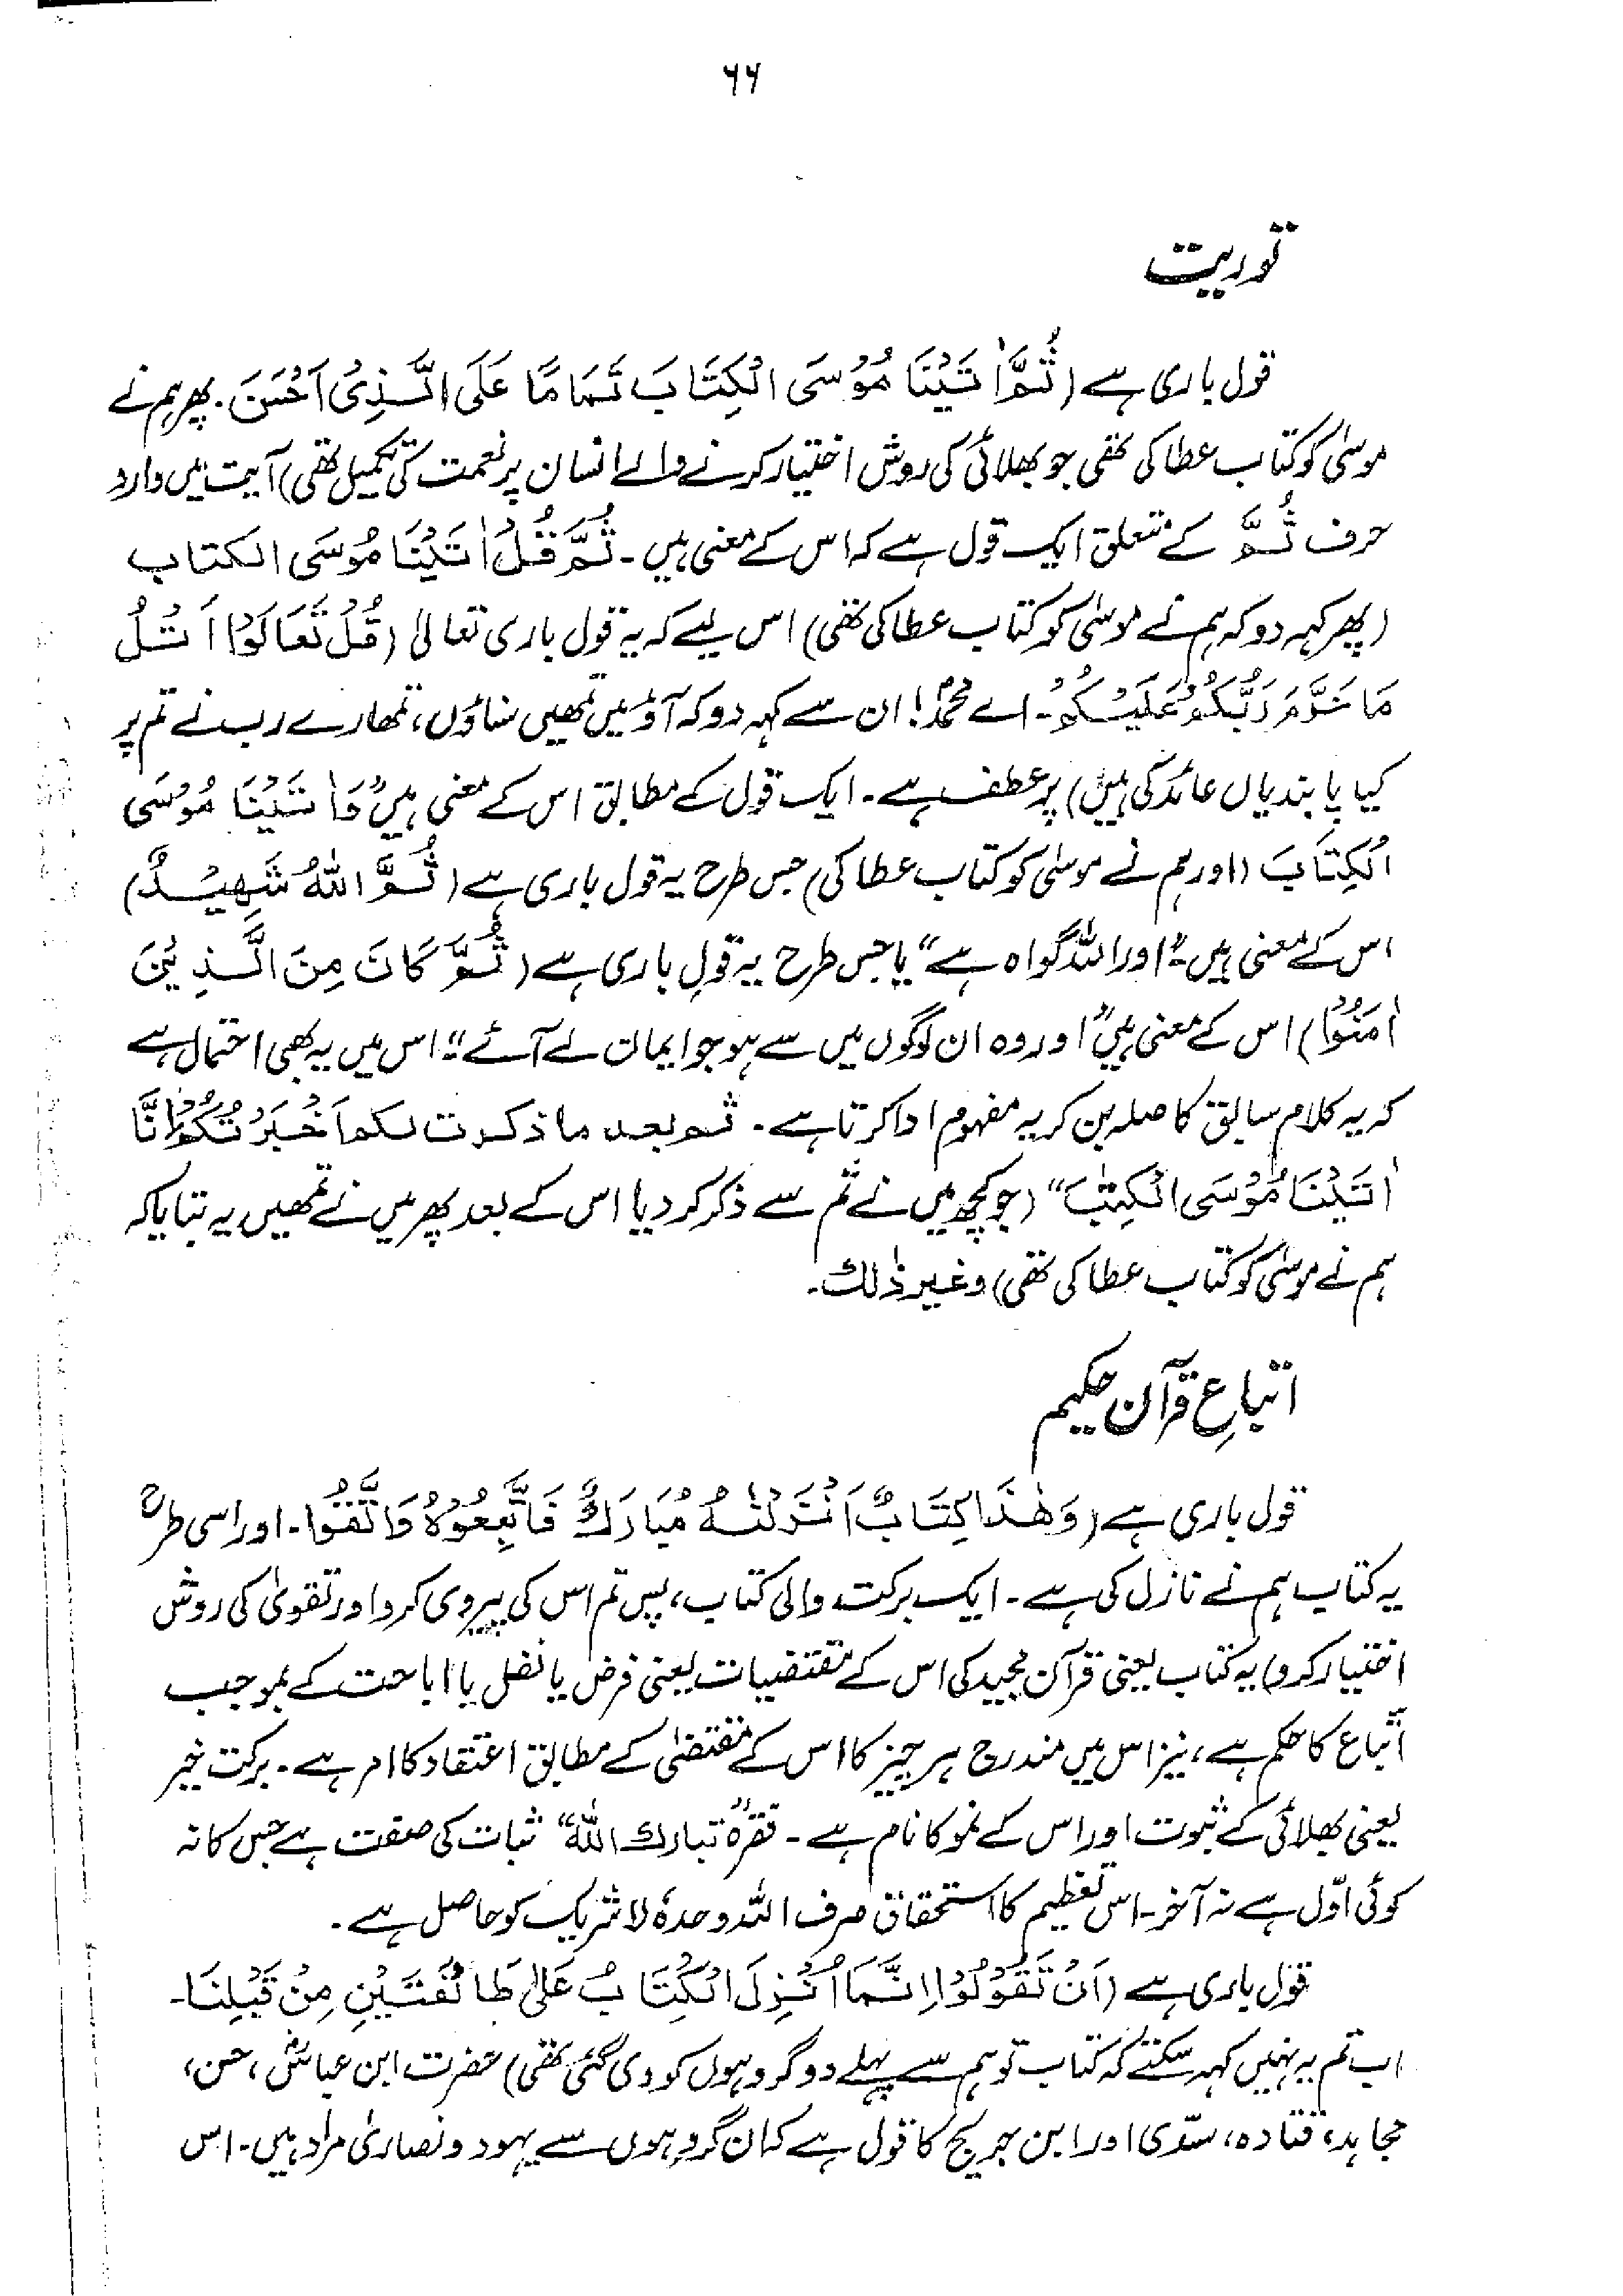 ۶۶
توریت
قول باری ہے (ثُمَّ اٰتَیْنَا مُوْسَی الْکِتَابَ تَمَامًا عَلَی الَّذِیْ اَحْسَنَ۔ پھر ہم نے
موسیٰ کو کتاب عطا کی تھی جو بھلائی کی روش اختیار کرنے والے انسان پر نعمت کی تکمیل تھی) آیت میں وارد
حرف ثُمَّ کے متعلق ایک قول ہے کہ اس کے معنی ہیں۔ ثُمَّ قُلْ اٰتَیْنَا مُوْسَی الکتاب
(پھر کہہ دو کہ ہم نے موسیٰ کو کتاب عطا کی تھی) اس لیے کہ یہ قول باری تعالیٰ (قُلْ تَعَالَوْا اَتْلُ
مَا حَرَّمَ رَبُّکُمْ عَلَیْکُمْ۔ اے محمدؐ! ان سے کہہ دو کہ آؤ میں تمھیں سناؤں، تمھارے رب نے تم پر
کیا پابندیاں عائد کی ہیں) پر عطف ہے۔ ایک قول کے مطابق اس کے معنی ہیں "وَاٰتَیْنَا مُوْسَی
الْکِتَابَ (اور ہم نے موسیٰ کو کتاب عطا کی) جس طرح یہ قول باری ہے (ثُمَّ اللّٰہُ شَھِیْدٌ)
اس کے معنی ہیں۔ "اور اللہ گواہ ہے" یا جس طرح یہ قول باری ہے (ثُمَّ کَانَ مِنَ الَّذِیْنَ
اٰمَنُوْا) اس کے معنی ہیں "اور وہ ان لوگوں میں سے ہو جو ایمان لے آئے"۔ اس میں یہ بھی احتمال ہے
کہ یہ کلام سابق کا صلہ بن کر یہ مفہوم ادا کرتا ہے۔ ثم بعد ما ذکرت لکم اَخْبَرْتُکُمْ اَنَّا
اٰتَیْنَا مُوْسَی الْکِتٰبَ" (جو کچھ میں نے تم سے ذکر کر دیا اس کے بعد پھر میں نے تمھیں یہ بتایا کہ
ہم نے موسیٰ کو کتاب عطا کی تھی) وغیر ذٰلک۔
اتباعِ قرآن حکیم
قول باری ہے (وَھٰذَا کِتَابٌ اَنْزَلْنٰہُ مُبَارَکٌ فَاتَّبِعُوْہُ وَاتَّقُوْا۔ اور اسی طرح
یہ کتاب ہم نے نازل کی ہے۔ ایک برکت والی کتاب، پس تم اس کی پیروی کرو اور تقویٰ کی روش
اختیار کرو) یہ کتاب یعنی قرآن مجید کی اس کے مقتضیات یعنی فرض یا نفل یا اباحت کے بموجب
اتباع کا حکم ہے، نیز اس میں مندرج ہر چیز کا اس کے مقتضیٰ کے مطابق اعتقاد کا امر ہے۔ برکت خیر
یعنی بھلائی کے ثبوت اور اس کے نمو کا نام ہے۔ فقرہ "تبارک اللّٰہ" ثبات کی صفت ہے جس کا نہ
کوئی اوّل ہے نہ آخر۔ اس تعظیم کا استحقاق صرف اللہ وحدہٗ لا شریک کو حاصل ہے۔
قول باری ہے (اَنْ تَقُوْلُوْا اِنَّمَا اُنْزِلَ الْکِتَابُ عَلٰی طَائِفَتَیْنِ مِنْ قَبْلِنَا۔
اب تم یہ نہیں کہہ سکتے کہ کتاب تو ہم سے پہلے دو گروہوں کو دی گئی تھی) حضرت ابن عباسؓ، حسن،
مجاہد، قتادہ، سدّی اور ابن جریج کا قول ہے کہ ان گروہوں سے یہود و نصاریٰ مراد ہیں۔ اس